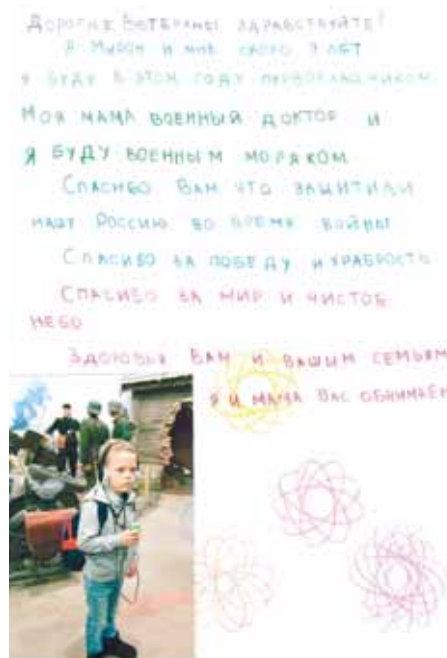 Дорогие ветераны здравствуйте!
Я Мирон и мне скоро 7 лет
я буду в этом году первоклассником.
Моя мама военный доктор и
я буду военным моряком
Спасибо Вам что защитили
нашу Россию во время войны
Спасибо за победу и храбрость
Спасибо за мир и чистое
небо
Здоровья Вам и вашим семьям
я и мама Вас обнимаем